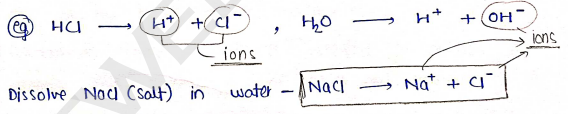 eg HCl ⟶ H⁺ + Cl⁻ , H₂O ⟶ H⁺ + OH⁻
ions
ions
Dissolve NaCl (Salt) in water – NaCl ⟶ Na⁺ + Cl⁻